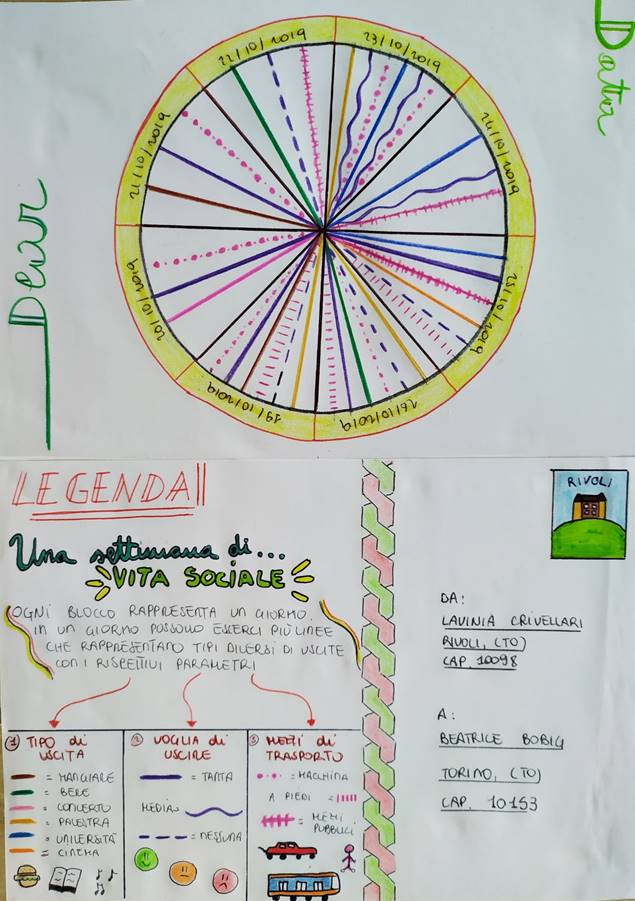 Dear
Data
19/10/2019
20/10/2019
21/10/2019
22/10/2019
23/10/2019
24/10/2019
25/10/2019
26/10/2019
LEGENDA
Una settimana di...
VITA SOCIALE
OGNI BLOCCO RAPPRESENTA UN GIORNO.
IN UN GIORNO POSSONO ESSERCI PIÙ LINEE
CHE RAPPRESENTANO TIPI DIVERSI DI USCITE
CON I RISPETTIVI PARAMETRI
① TIPO di
USCITA
= MANGIARE
= BERE
= CONCERTO
= PALESTRA
= UNIVERSITÀ
= CINEMA
② VOGLIA di
USCIRE
= TANTA
MEDIA=
= NESSUNA
③ MEZZI di
TRASPORTO
= MACCHINA
A PIEDI =
= MEZZI
PUBBLICI
RIVOLI
DA:
LAVINIA CRIVELLARI
RIVOLI, (TO)
CAP. 10098
A:
BEATRICE BOBIG
TORINO, (TO)
CAP. 10153